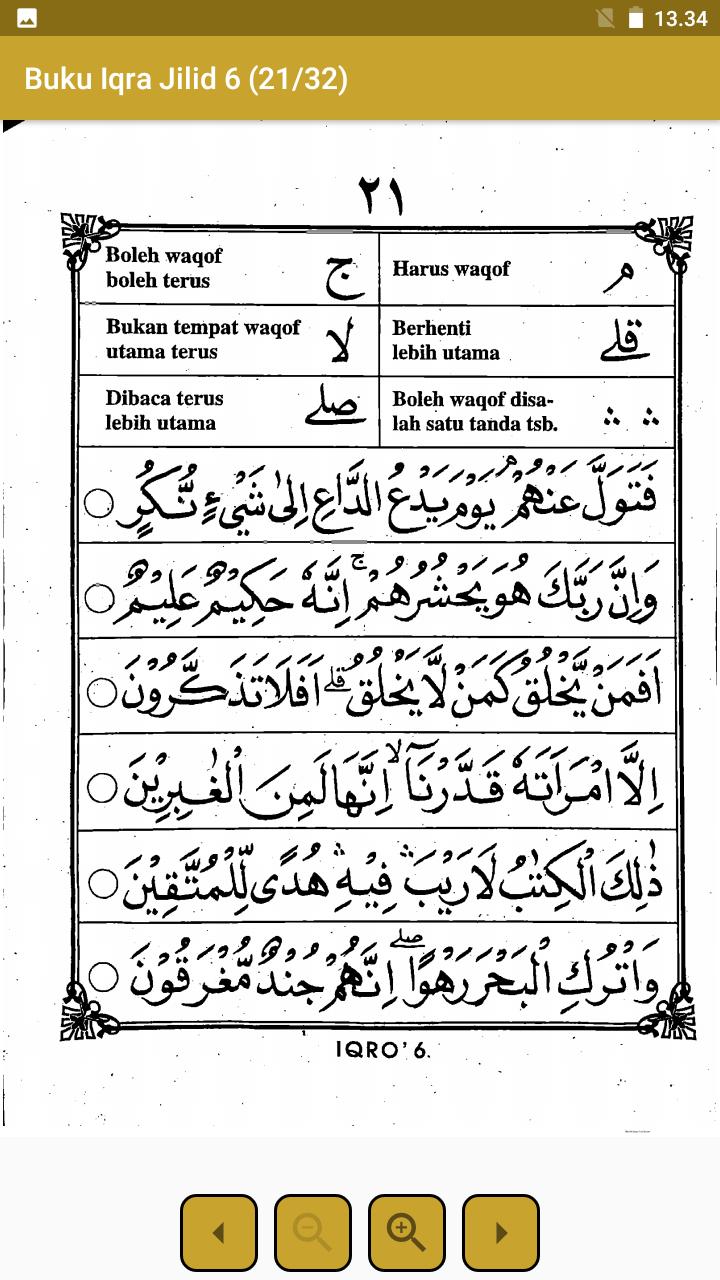 13.34
Buku Iqra Jilid 6 (21/32)
٢١
Harus waqof م
Boleh waqof ج
boleh terus
Berhenti قلے
lebih utama
Bukan tempat waqof لا
utama terus
Boleh waqof disa- ∴ ∴
lah satu tanda tsb.
Dibaca terus صلے
lebih utama
فَتَوَلَّ عَنْهُمْ ۘ يَوْمَ يَدْعُ الدَّاعِ اِلٰى شَيْءٍ نُّكُرٍ ○
وَاِنَّ رَبَّكَ هُوَ يَحْشُرُهُمْ ۚ اِنَّهٗ حَكِيْمٌ عَلِيْمٌ ○
اَفَمَنْ يَّخْلُقُ كَمَنْ لَّا يَخْلُقُ ۗ اَفَلَا تَذَكَّرُوْنَ ○
اِلَّا امْرَاَتَهٗ قَدَّرْنَآ ۙ اِنَّهَا لَمِنَ الْغٰبِرِيْنَ ○
ذٰلِكَ الْكِتٰبُ لَا رَيْبَ ۛ فِيْهِ ۛ هُدًى لِّلْمُتَّقِيْنَ ○
وَاتْرُكِ الْبَحْرَ رَهْوًا ۖ اِنَّهُمْ جُنْدٌ مُّغْرَقُوْنَ ○
IQRO' 6.